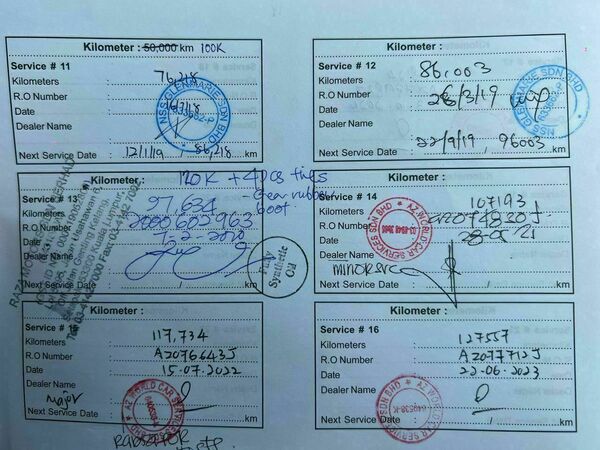 Kilometer : 50,000 km 100K
Service # 11
Kilometers 76,218
R.O Number
Date 16/7/18
Dealer Name
Next Service Date 12/1/19 / 86,218 km
NSS GLENMARIE SDN BHD
Service # 12
Kilometers 86,003
R.O Number
Date 26/3/19
Dealer Name
22/9/19 96003
Next Service Date / km
GLENMARIE SDN BHD
120K + 4 pcs tires
- Gear rubber
boot
Service # 13
Kilometers 97,634
2000602963
7-2-2020
Dealer Name
Next Service Date / km
Fully
Synthetic
Oil
Kilometer :
Service # 14
Kilometers 107193
R.O Number AZ074830J
Date
Dealer Name
minor svc
Next Service Date / km
AZ WORLD CAR SERVICES SDN BHD
Kilometer :
Service # 15
Kilometers 117,734
R.O Number AZ076643J
Date 15.07.2022
Dealer Name
major
Next Service Date / km
AZ WORLD CAR SERVICES SDN BHD
Kilometer :
Service # 16
Kilometers 127557
R.O Number AZ077712J
Date 22-06-2023
Dealer Name
Next Service Date / km
AZ WORLD CAR SERVICES SDN BHD